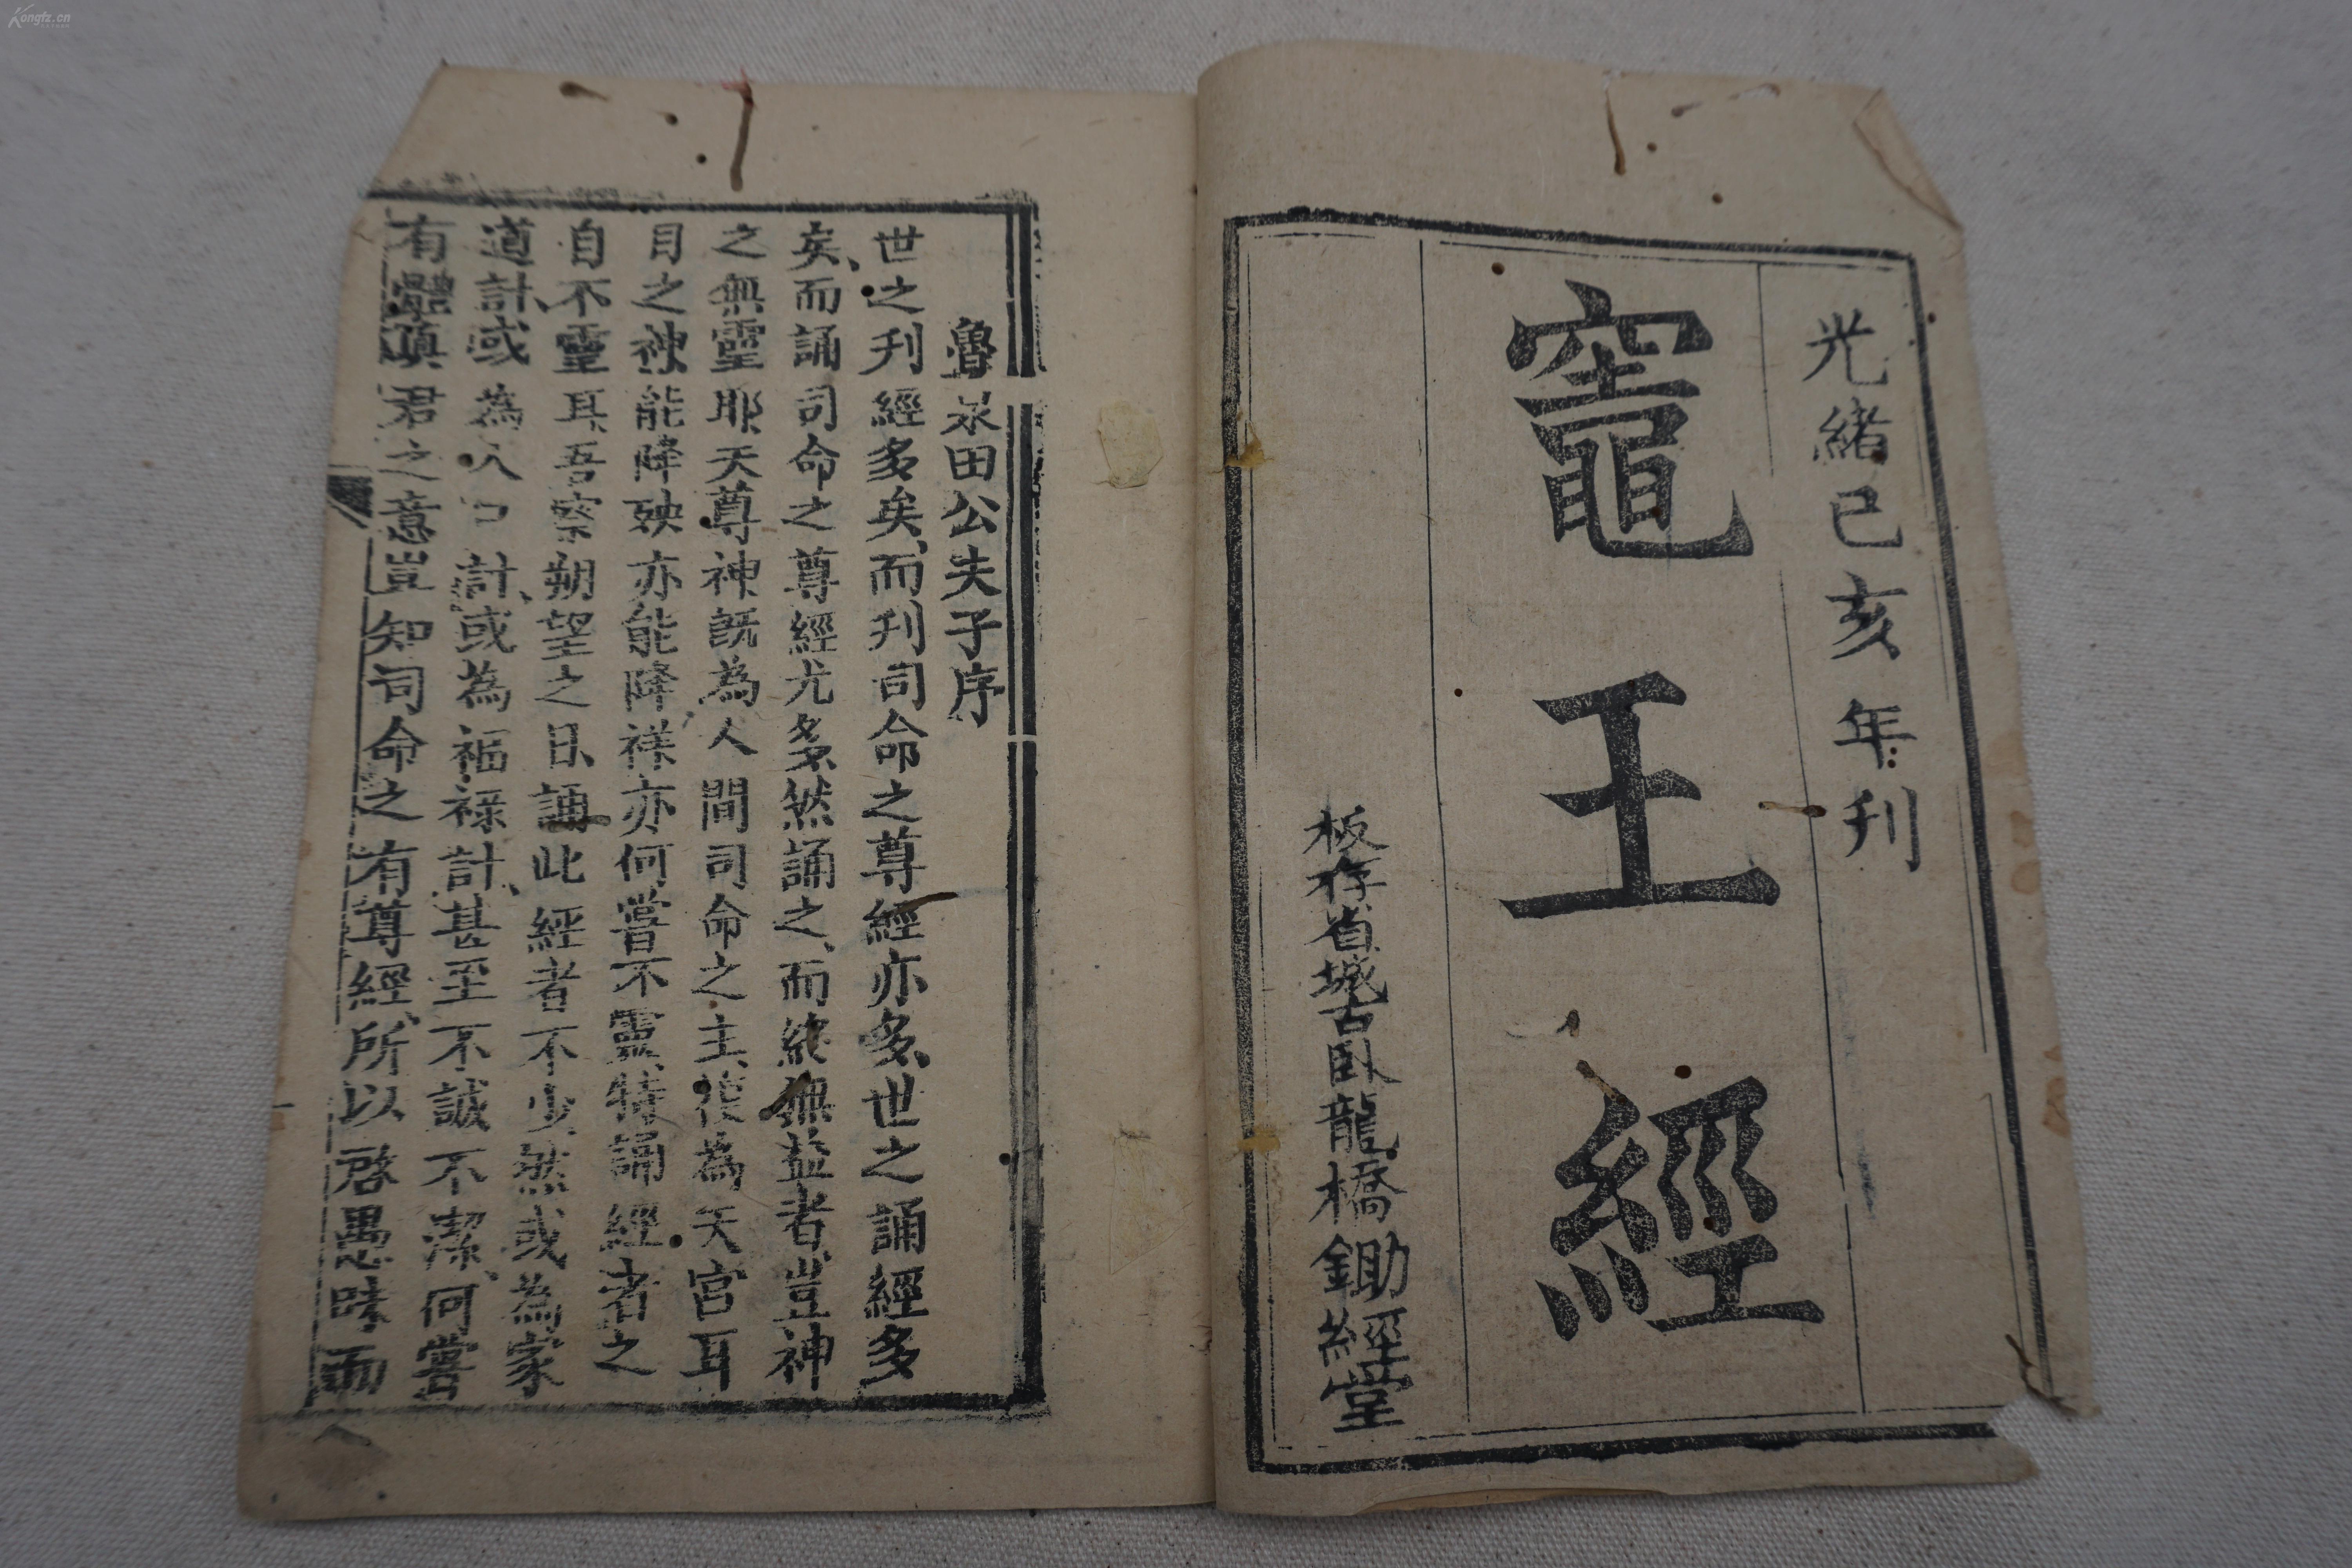 光緒己亥年刊
竈王經
板存省城古臥龍橋鋤經堂
魯永田公夫子序
世之刋經多矣、而刋司命之尊經亦多、世之誦經多
矣、而誦司命之尊經尤多、然誦之、而終無益者、豈神
之無靈耶、天尊神既為人間司命之主、復為天官耳
目之神能降殃亦能降祥亦何嘗不靈、特誦經者之
自不靈耳、吾察朔望之日、誦此經者不少、然或為家
道計、或為人口計、或為福祿計、甚至不誠不潔、何嘗
有體真君之意豈知司命之有尊經、所以啓愚昧而
Kongfz.cn